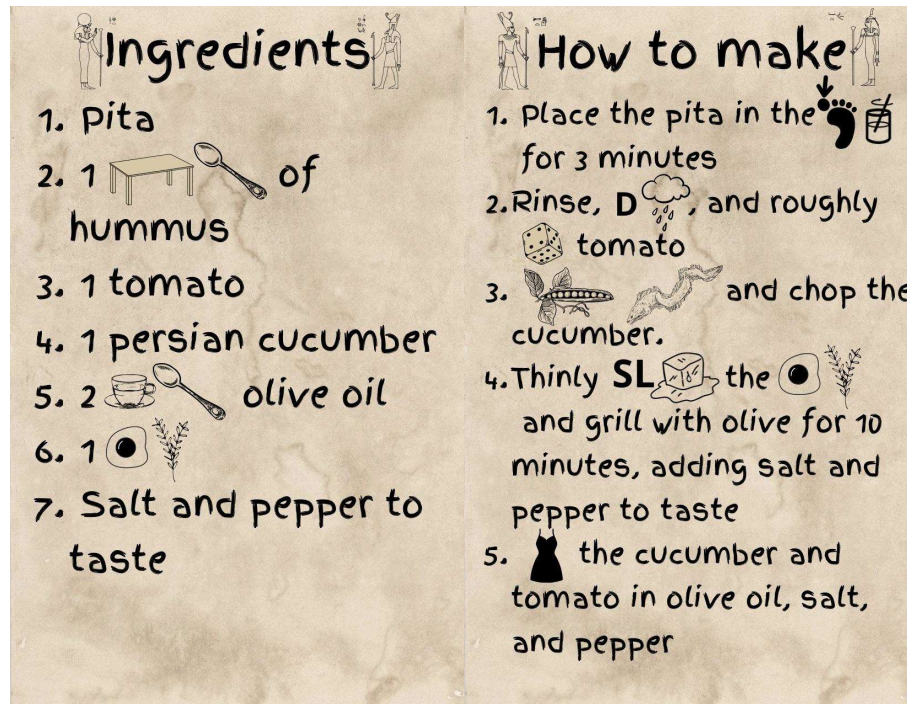 Ingredients
1. Pita
2. 1 of
hummus
3. 1 tomato
4. 1 persian cucumber
5. 2 olive oil
6. 1
7. Salt and pepper to
taste
How to make
1. Place the pita in the
for 3 minutes
2. Rinse, D , and roughly
tomato
3. and chop the
cucumber.
4. Thinly SL the
and grill with olive for 10
minutes, adding salt and
pepper to taste
5. the cucumber and
tomato in olive oil, salt,
and pepper